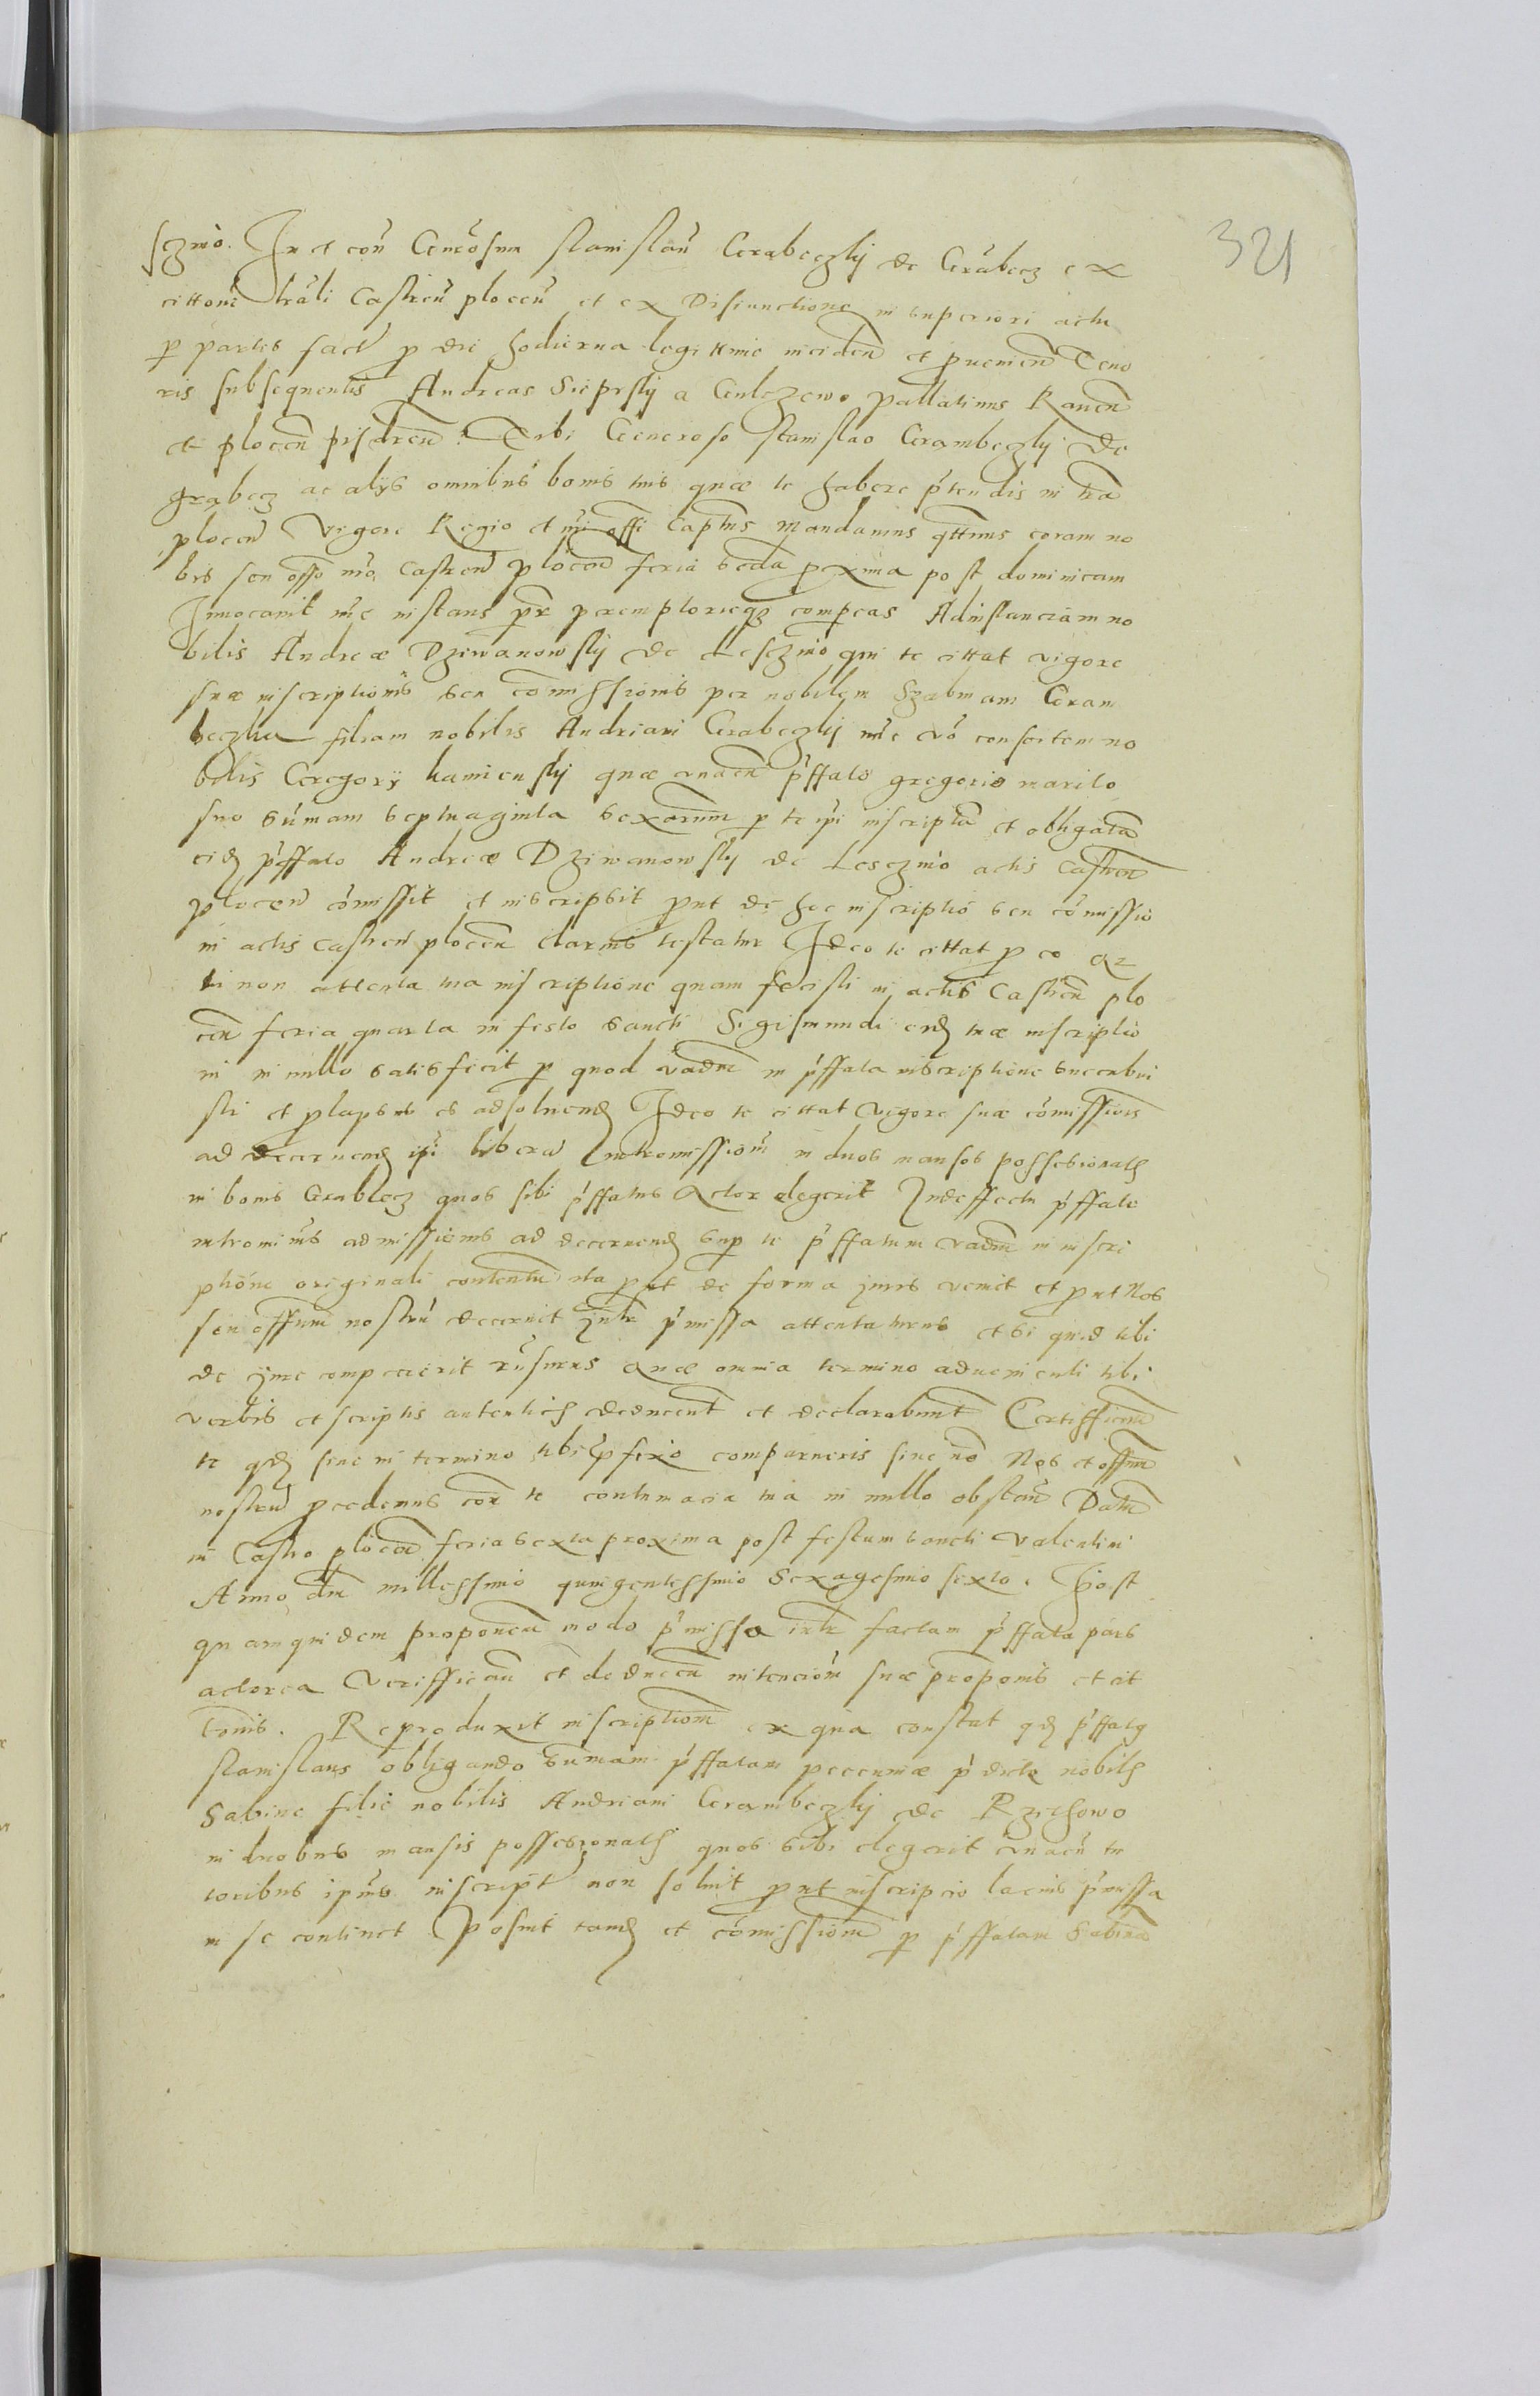 321
sczmo. In et con Generosum Stanislaum Grabeczkij de Grabecz ex
cittone trali Castren plocen et ex Disiunctione in superiori actu
p partes fact p die hodierna legittime inciden et pueniend Teno
ris subsequentis Andreas Sieprskij a Gulczewo pallatinus Raven
et plocen pisdren. Tibi Generoso Stanislao Grambeczkij de
grabecz ac alijs omnibus bonis tuis quæ te habere ptendis in tra
plocen Vigore Regio et nri offi Captus mandamus qttnus coram no
bis seu offo nro Castren plocen feria scda pxima post dominicam
Inuocauit nuc instans per peremptorieqz compeas Ad instanciam no
bilis Andreæ Dziewanowskij de Lesczmo qui te cittat vigore
suæ inscriptionis seu comissionis per nobilem Szabinam Gram
beczka filiam nobilis Andriani Grabeczkij nuc vo consortem no
bilis Gregorij kamienskij quæ vnacu pffato gregorio marito
suo sumam septuaginta sexarum p te ipi inscripta et obligata
eid pffato Andreæ Dziewanowskij de Lesczmo actis Castren
plocen comissit et inscripsit put de hoc inscriptio seu comissio
in actis castren plocen clarius testatur Ideo te cittat p eo qz
tu non attenta tua inscriptione quam fecisti in actis Castren plo
cen feria quarta in festo sancti Sigismundi eid tuæ inscriptio
ni in nullo satisfecit p quod vadm in pffata inscriptione succubui
sti et plapsus es adsoluend Ideo te cittat vigore suæ comissiois
ad decernend ipi libera Intromissiom in duos mansos possesionats
in bonis Grabecz quos sibi pffatus Actor elegerit In deffectu pffate
intromiis admissionis ad decernend sup te pffatum vadm in inscri
ptione originali contentu ita put de forma juris venit et put Nos
seu offum nostru decernit Intr pmissa attentaturus et si quid tibi
de jure competierit rusurus Quæ omnia termino aduenienti tibi
verbis et scriptis autentics deducent et declarabunt Certifficam
te qd siue in termino tibi pfixo comparueris siue no Nos et offum
nostru pcedemus con te contumacia tua in nullo obstan Datu
in Castro plocen feria sexta proxima post festum sancti Valentini
Anno dni millessimo quingentessimo Sexagesimo sexto. Post
quamquidem proponcu modo pmisso intr factam pffata pars
actorea Veriffican et deducen intenciom suæ proponis et cit
tonis. Reproduxit inscriptiom ex qua constat qd pffatg
Stanislaus obligando sumam pffatam pecuniæ pdicte nobils
Sabine filie nobilis Andriani Grambeczkij de Rzechowo
in duobus mansis possesionats quos sibi elegerit vnacu tu
toribus ipius inscript non soluit put inscripcio lacius pmissa
in se continet Posuit tamd et comissiom p pffatam Sabina